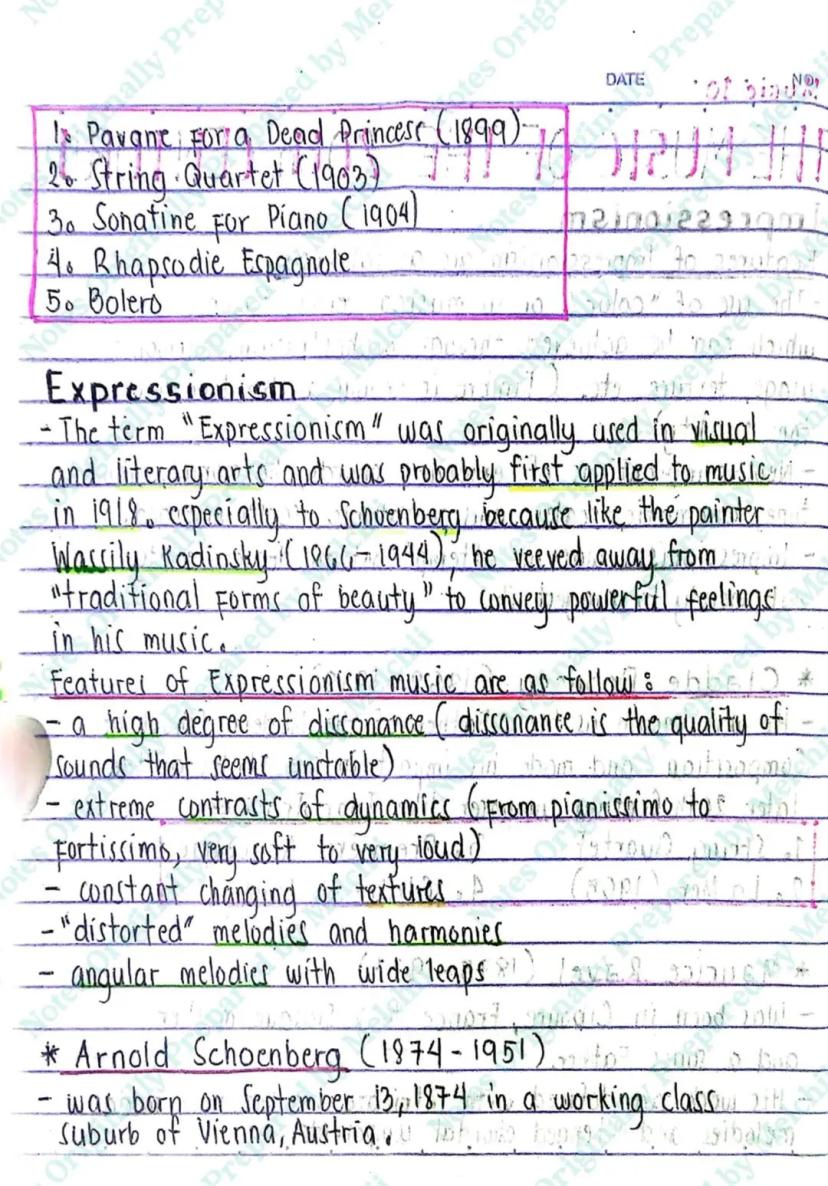 DATE NO.
1. Pavane for a Dead Princess (1899)
2. String Quartet (1903)
3. Sonatine for Piano (1904)
4. Rhapsodie Espagnole
5. Bolero
Expressionism
- The term "Expressionism" was originally used in visual
and literary arts and was probably first applied to music
in 1918. especially to Schoenberg because like the painter
Wassily Kadinsky (1866-1944), he veeved away from
"traditional forms of beauty" to convey powerful feelings
in his music.
Features of Expressionism music are as follow:
- a high degree of dissonance (dissonance is the quality of
sounds that seems unstable)
- extreme contrasts of dynamics (from pianissimo to
fortissimo, very soft to very loud)
- constant changing of textures
- "distorted" melodies and harmonies
- angular melodies with wide leaps
* Arnold Schoenberg (1874-1951)
- was born on September 13, 1874 in a working class
suburb of Vienna, Austria.